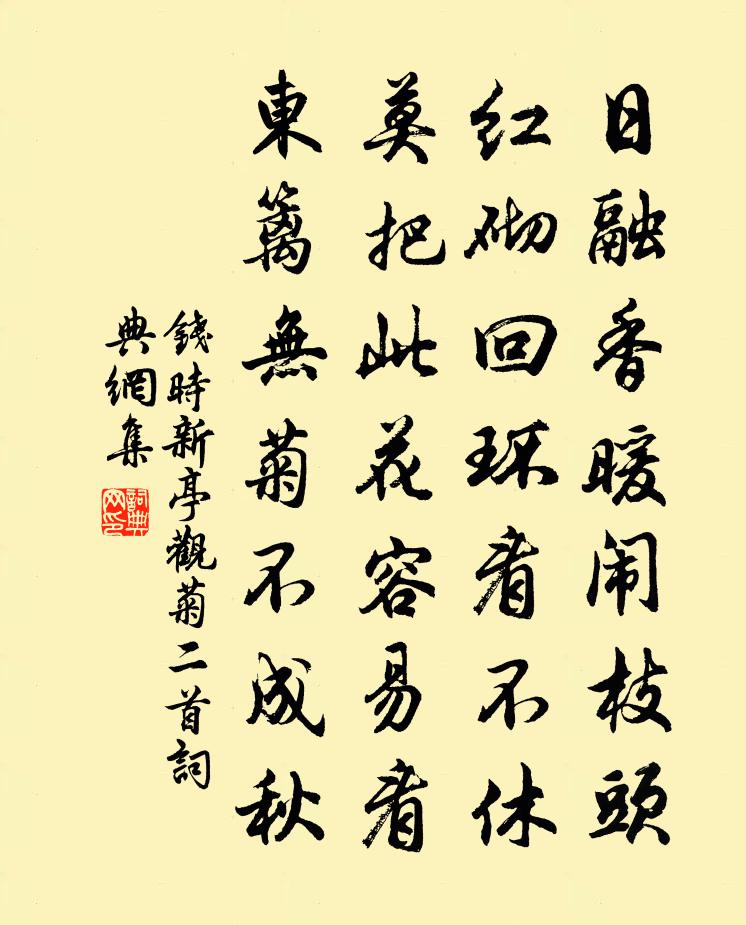 日融香暖闹枝頭
红砌回环看不休
莫把此花容易看
東籬無菊不成秋
錢時新亭觀菊二首詞
典網集
詞典
网印